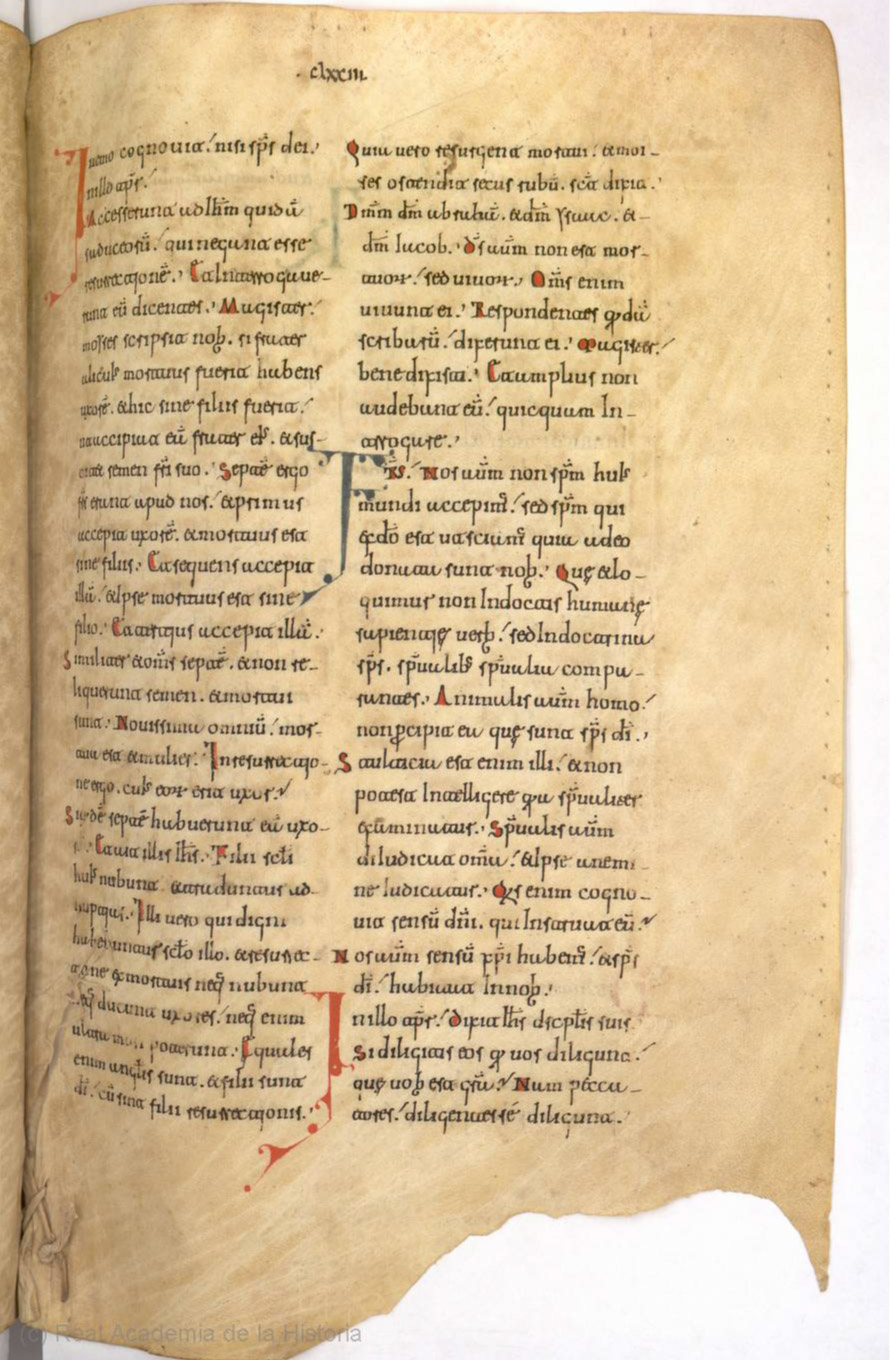 clxxiii.
nemo cognouit. nisi sp̄s dei.
In illo tp̄r.
Accesserunt ad ih̄m quidā
saduceorū. qui negunt esse
resurrectionē. Et interrogaue-
runt eū dicentes. Magister.
moyses scripsit nob̄. si frater
alicuiꝰ mortuus fuerit habens
uxorē. & hic sine filiis fuerit.
ut accipiat eū frater eiꝰ. & sus-
citet semen fr̄i suo. Septē ergo
fr̄s erant apud nos. & primus
accepit uxorē. & mortuus est
sine filiis. Et sequens accepit
illā. & Ipse mortuus est sine
filio. Et tertius accepit illā.
Similiter & om̄s septē. & non re-
liquerunt semen. & mortui
sunt. Nouissima omniū. mor-
tua est & mulier. In resurrectio-
ne ergo. cuiꝰ eoꝝ erit uxor.
Siquidē septē habuerunt eā uxo-
rē. Et ait illis ih̄s. Filii scl̄i
huiꝰ nubunt & traduntur ad
nuptias. Illi uero qui digni
habebuntur sc̄lo illo. & resurrec-
tione ex mortuis neq; nubunt
neq; ducunt uxores. neq; enim
ultra mori poterunt. Equales
enim angl̄is sunt. & filii sunt
dī. cū sint filii resurrectionis.
Quia uero resurgent mortui. & moi-
ses ostendit secus rubū. sct̄ dixit.
Dn̄m dm̄ abraham. & dm̄ ysaac. &-
dm̄ Iacob. Ds̄ autm̄ non est mor-
tuoꝝ. sed uiuoꝝ. Om̄s enim
uiuunt ei. Respondentes qdā
scribarū. dixerunt ei. Magister.
bene dixisti. Et amplius non
audebant eū. quicquam In-
terrogare.
Frs̄. Nos autm̄ non sp̄m huiꝰ
mundi accepimꝰ. sed sp̄m qui
ex dō est ut sciamꝰ quia a deo
donata sunt nob̄. Quę & lo-
quimur non In doctis humanę
sapientię uerb̄. sed In doctrina
sp̄s. sp̄ualib; sp̄ualia compa-
rantes. Animalis autm̄ homo.
non p̄cipit ea quę sunt sp̄s dī.
Stultitia est enim illi. & non
potest Intelligere qa sp̄ualiter
examinatur. Sp̄ualis autm̄
diIudicat omā. & Ipse a nemi-
ne Iudicatur. Qis enim cogno-
uit sensū dn̄i. qui Instruat eū.
Nos autm̄ sensū xp̄i habemꝰ. & sp̄s
dī. habitat In nob̄.
In illo tp̄r. Dixit ih̄s discplis suis
Si diligitis eos q uos diligunt.
quę uob̄ est grā. Nam & pecca-
tores. diligentes sé diligunt.
(c) Real Academia de la Historia